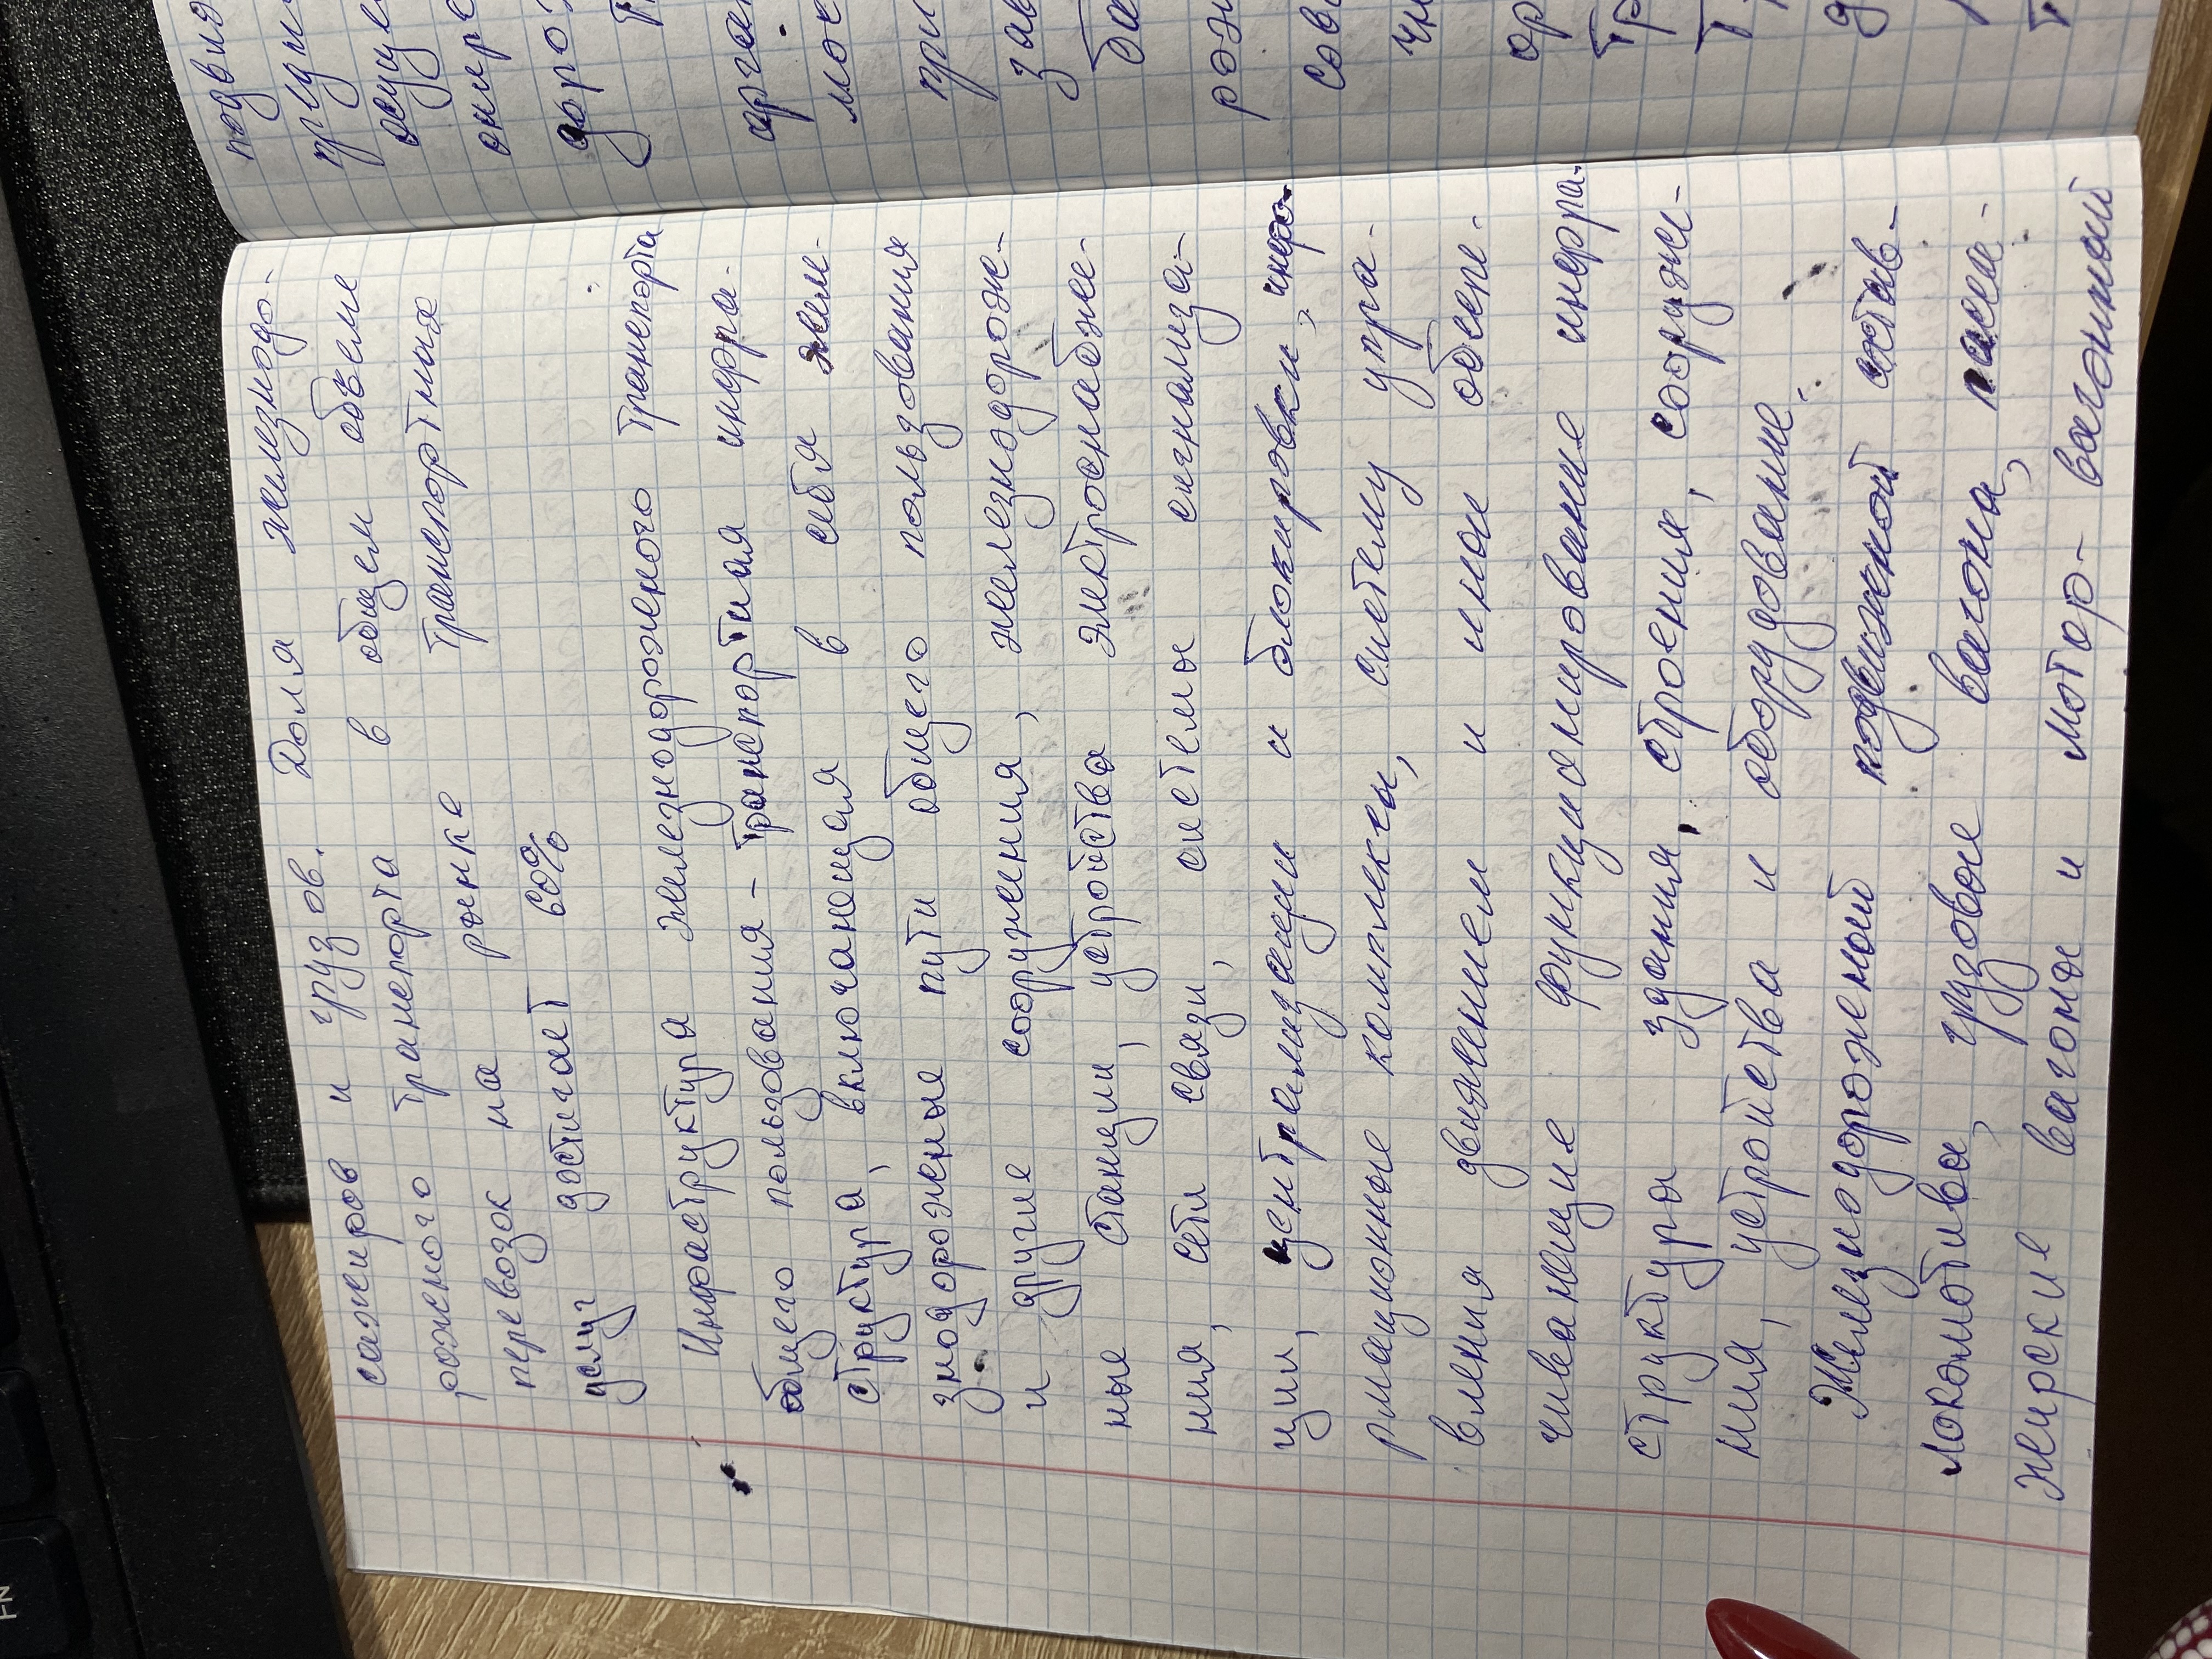 сажиров и грузов. Доля железнодо-
рожного транспорта в общем объеме
перевозок на рынке транспортных
услуг достигает 60%
Инфраструктура железнодорожного транспорта
общего пользования - транспортная инфра-
структура, включающая в себя желе-
знодорожные пути общего пользования
и другие сооружения, железнодорож-
ные станции, устройства электроснабже-
ния, сети связи, системы сигнализа-
ции, централизации и блокировки, инфо-
рмационные комплексы, систему упра-
вления движением и иные обеспе-
чивающие функционирование инфра-
структуры здания, строения, сооруже-
ния, устройства и оборудование.
Железнодорожный подвижной состав -
локомотивы, грузовые вагоны, пасса-
жирские вагоны и мотор-вагонный
подвиж
осуще
доро
орган
мос
при
зав
ба
рож
сов
чи
ор
тр